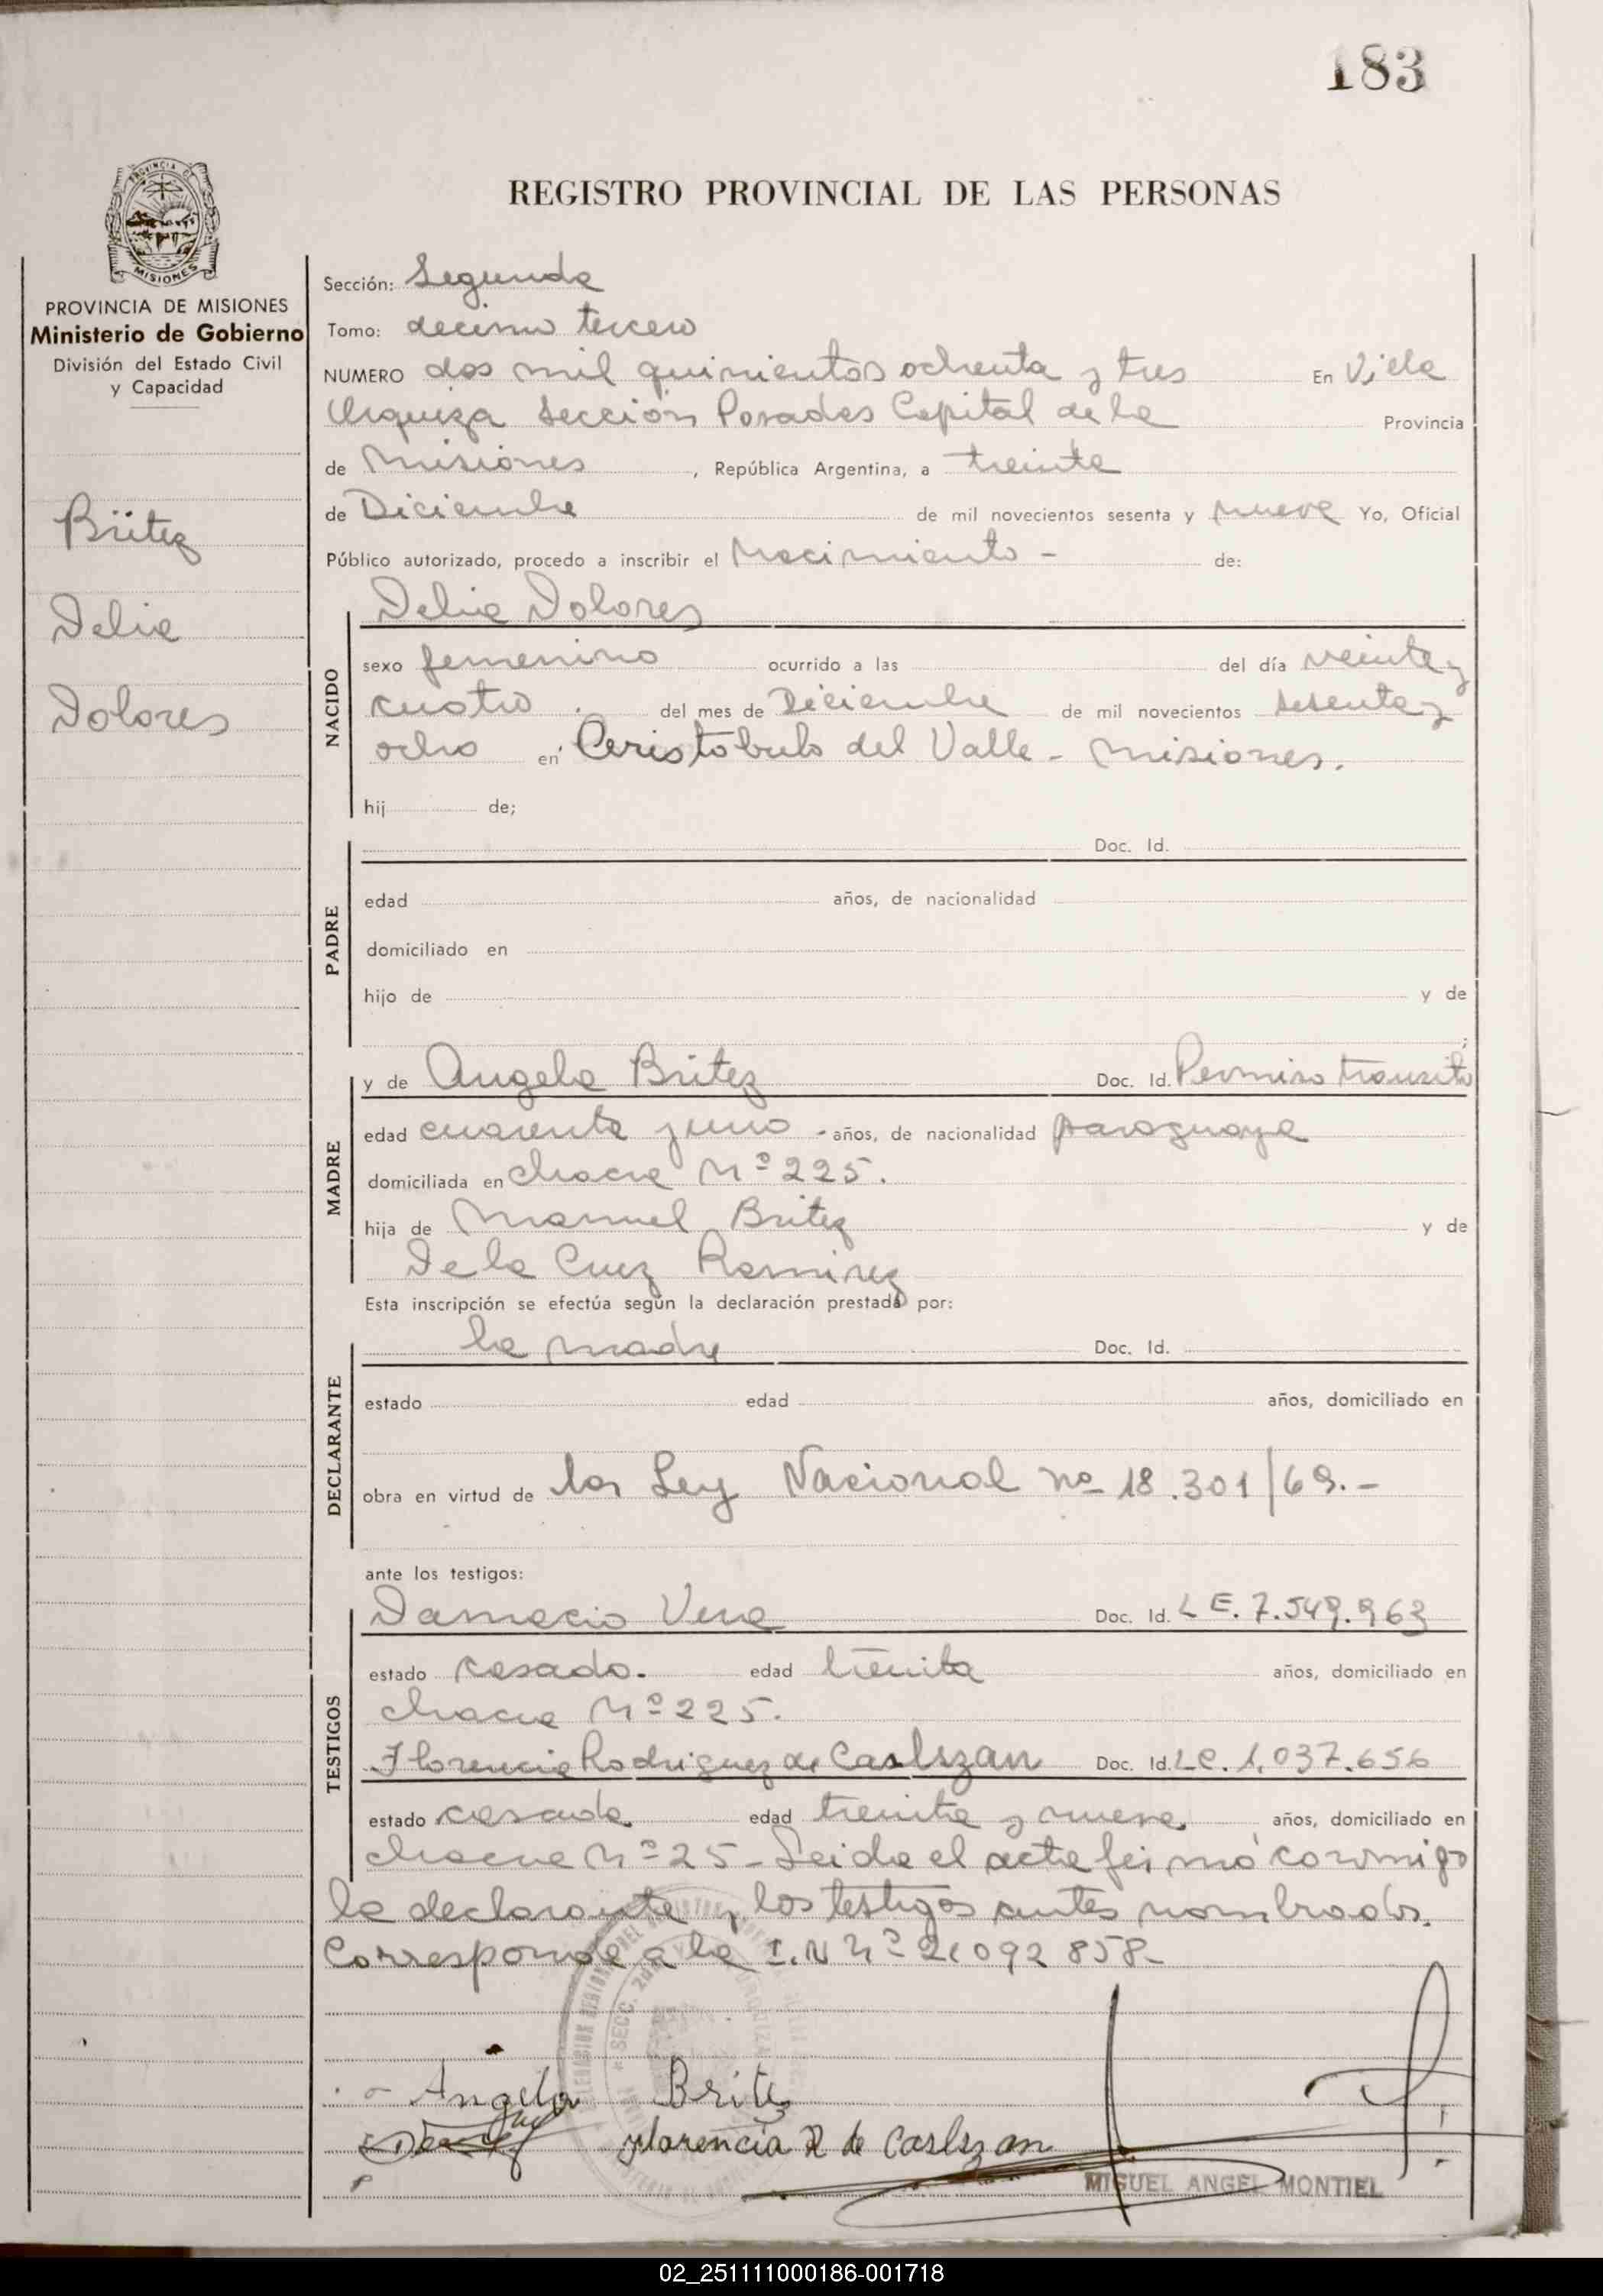 183
REGISTRO PROVINCIAL DE LAS PERSONAS
PROVINCIA DE MISIONES
Ministerio de Gobierno
División del Estado Civil
y Capacidad
Britez
Delia
Dolores
Sección: Segunda
Tomo: decimo tercero
NUMERO dos mil quinientos ochenta y tres En Villa
Urquiza Sección Posadas Capital de la Provincia
de Misiones, República Argentina, a treinta
de Diciembre de mil novecientos sesenta y nueve Yo, Oficial
Público autorizado, procedo a inscribir el Nacimiento - de:
Delia Dolores
NACIDO
sexo femenino ocurrido a las del día veinte y
cuatro . del mes de Diciembre de mil novecientos sesenta y
ocho en Ceristobulo del Valle - Misiones.
hij de;
PADRE
Doc. Id.
edad años, de nacionalidad
domiciliado en
hijo de y de
;
MADRE
y de Angela Britez Doc. Id. Permiso transito
edad cuarenta y uno - años, de nacionalidad paraguaya
domiciliada en chacra Nº 225.
hija de Manuel Britez y de
De la Cruz Ramirez
Esta inscripción se efectúa según la declaración prestada por:
DECLARANTE
la madre Doc. Id.
estado edad años, domiciliado en
obra en virtud de las Ley Nacional nº 18.301/69.-
ante los testigos:
TESTIGOS
Damacio Vera Doc. Id. L E. 7.549.963
estado casado. edad treinta años, domiciliado en
chacra Nº 225.
Florencia Rodriguez de Caslszan Doc. Id. LC. 1.037.656
estado casada edad treinta y nueve años, domiciliado en
chacra Nº 25 - Leida el acta firmó conmigo
la declarante y los testigos antes nombrados.
Corresponde a la I.N Nº 21092858-
Angela Brite
Florencia R de Caslszan
MIGUEL ANGEL MONTIEL
02_251111000186-001718